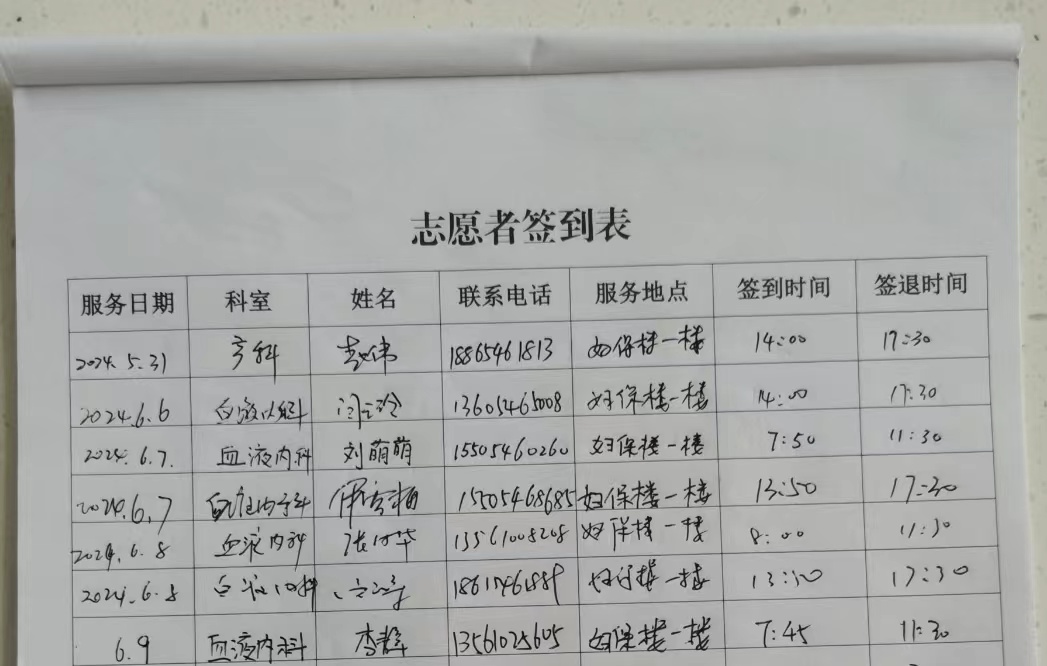 志愿者签到表
服务日期 科室 姓名 联系电话 服务地点 签到时间 签退时间
2024.5.31 产科 伟 18865461813 妇保楼一楼 14:00 17:30
2024.6.6 血液内科 13605465008 妇保楼一楼 14:00 17:30
2024.6.7. 血液内科 刘萌萌 15505460260 妇保楼一楼 7:50 11:30
2024.6.7 血液内科 15205468685 妇保楼一楼 13:50 17:30
2024.6.8 血液内科 华 13561008208 妇保楼一楼 8:00 11:30
2024.6.8 血液内科 妇保楼一楼 13:50 17:30
6.9 血液内科 李静 13561025605 妇保楼一楼 7:45 11:30